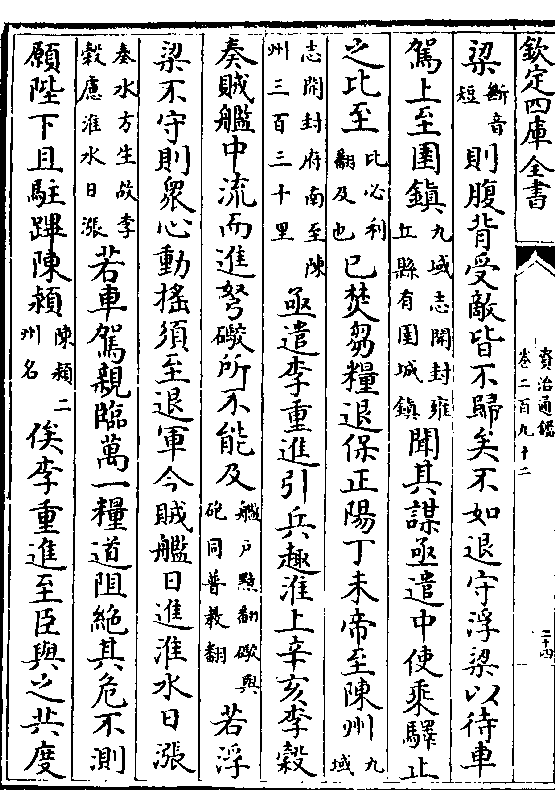 欽定四庫全書
資治通鑑
卷二百九十二
二十四
梁斷音短則腹背受敵皆不歸矣不如退守浮梁以待車
駕上至圉鎮九域志開封雍丘縣有圉城鎮聞其謀亟遣中使乘驛止
之比至比必利翻及也已焚芻糧退保正陽丁未帝至陳州九域
志開封府南至陳州三百三十里亟遣李重進引兵趣淮上辛亥李榖
奏賊艦中流而進弩礮所不能及艦戶黯翻礮與砲同普教翻若浮
梁不守則衆心動搖須至退軍今賊艦日進淮水日漲
春水方生故李榖慮淮水日漲若車駕親臨萬一糧道阻絶其危不測
願陛下且駐蹕陳潁陳潁二州名俟李重進至臣與之共度